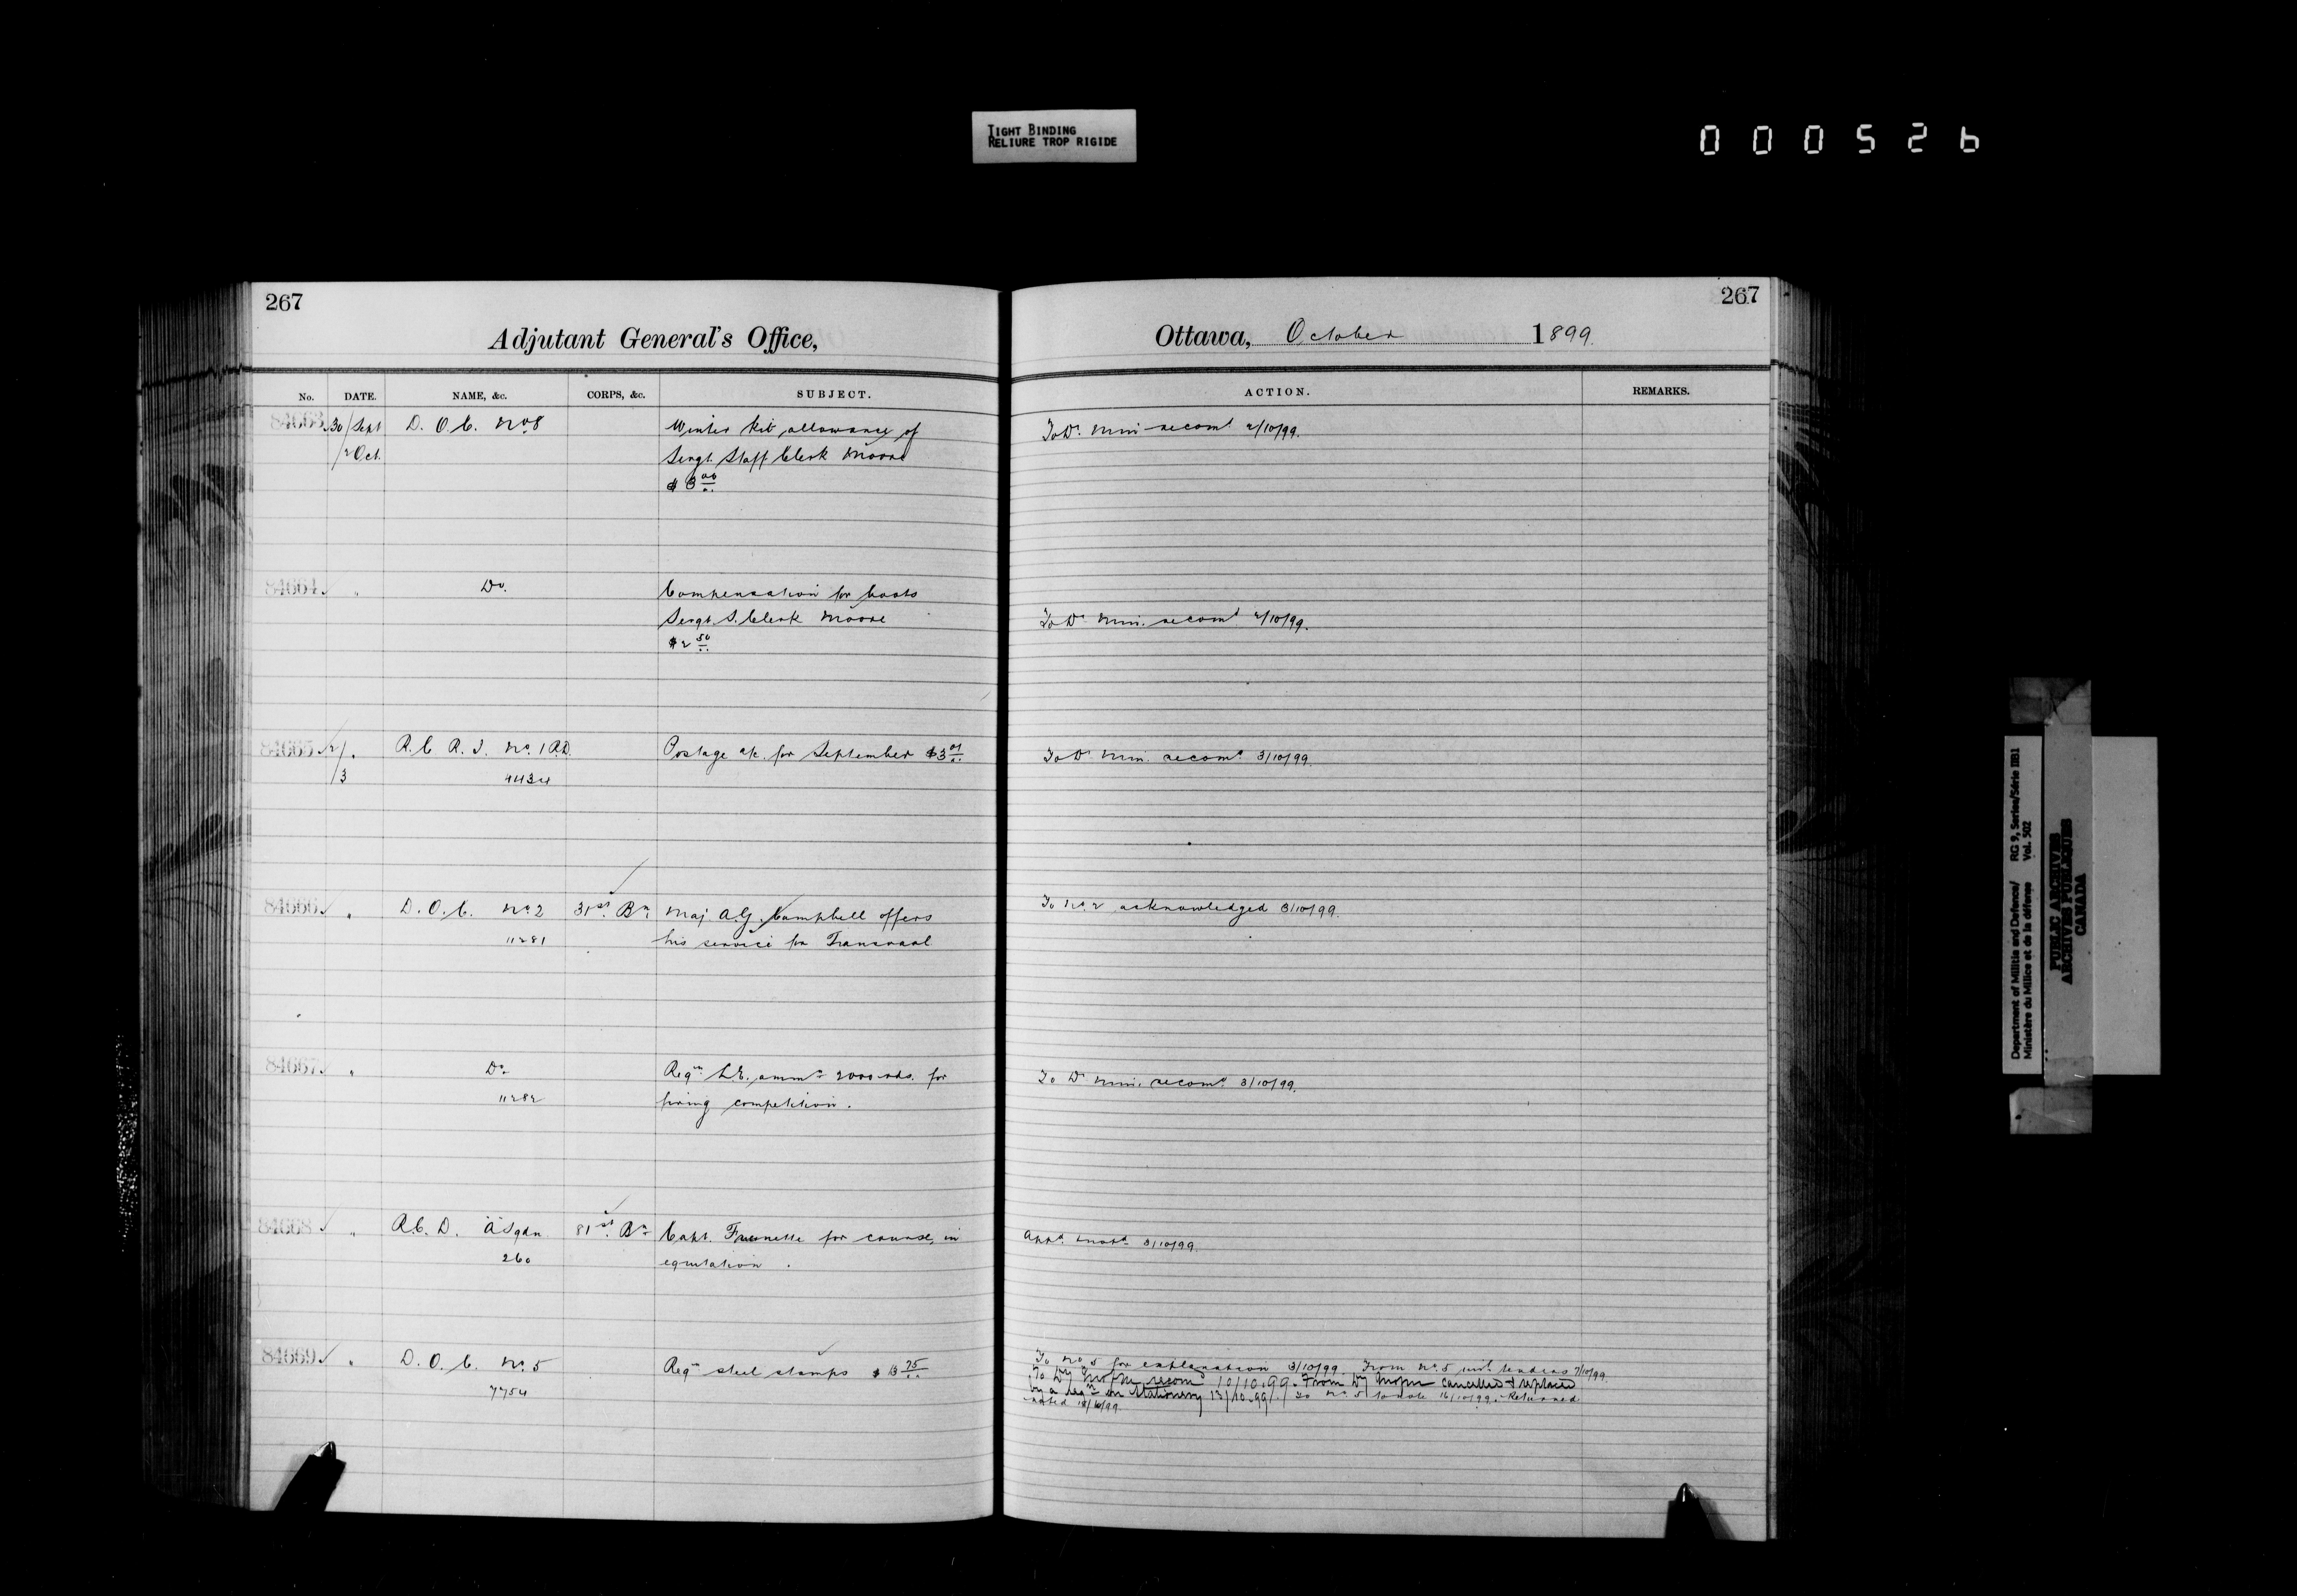 TIGHT BINDING
RELIURE TROP RIGIDE
000526
267
Adjutant General's Office,
No. DATE. NAME, &c. CORPS, &c. SUBJECT.
84663 30/Sept D. O. C. No 8 Winter Kit allowance of
/2 Oct. Sergt. Staff Clerk Moore
$ 8 00
84664 " Do. Compensation for boots
Sergt. S. Clerk Moore
$2 50
84665 2/. R. C. R. I. No. 1 R.D. Postage a/c. for September $3 01
/3 4434
84666 " D. O. C. No. 2 31st Bn. Maj A.G. Campbell offers
11281 his service for Transvaal
84667 " Do. Reqn. L.E. ammn. 2000 rds. for
11282 firing competition.
84668 " R.C. D. "A" Sqdn. 81st Bn. Capt. for course, in
260 equitation.
84669 " D. O. C. No. 5 Reqn steel stamps $ 13 75
7754
267
Ottawa, October 1899.
ACTION. REMARKS.
To Dr. Min recomd 2/10/99.
To Dr. Min. recomd 2/10/99.
To Dr. Min. recomd 3/10/99.
To No. 2 acknowledged 3/10/99.
To Dr Min. recomd. 3/10/99.
Appd. 3/10/99.
To No 5 for explanation 3/10/99. From No. 5 with tenders 7/10/99.
To Dy recom 10/10.99. From Dy cancelled & replaced
by a reqn on Stationery 13/10.99. To No. 5 to note 16/10/99. Returned
noted 18/10/99.
Department of Militia and Defence/ RG 9, Series/Série IIB1
Ministère du Milice et de la défense Vol. 502
PUBLIC ARCHIVES
ARCHIVES PUBLIQUES
CANADA